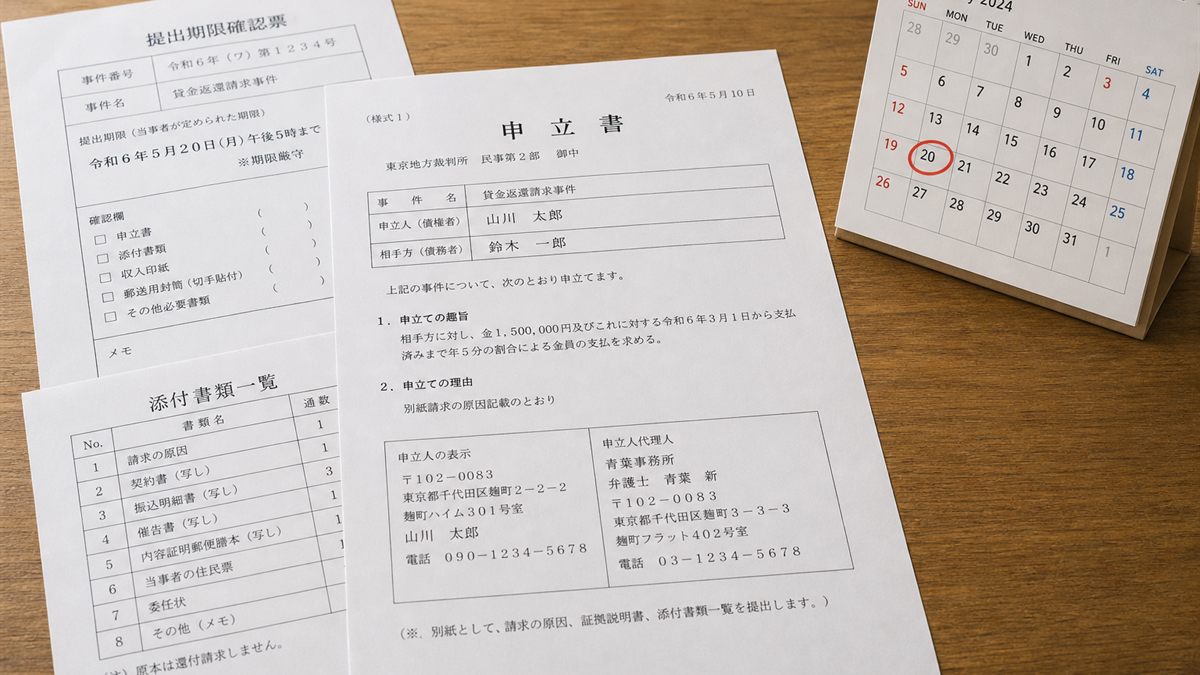 提出期限確認票
事件番号 令和6年(ワ)第1234号
事件名 貸金返還請求事件
提出期限(当事者が定められた期限)
令和6年5月20日(月)午後5時まで
※期限厳守
確認欄
□ 申立書 ( )
□ 添付書類 ( )
□ 収入印紙 ( )
□ 郵送用封筒(切手貼付) ( )
□ その他必要書類 ( )
メモ
添付書類一覧
No. 書類名 通数
1 請求の原因 1
2 契約書(写し) 1
3 振込明細書(写し) 3
4 催告書(写し) 1
5 内容証明郵便謄本(写し) 1
6 当事者の住民票 1
7 委任状
8 その他(メモ)
原本は還付請求しません。
令和6年5月10日
(様式1)
申立書
東京地方裁判所 民事第2部 御中
事件名 貸金返還請求事件
申立人(債権者) 山川 太郎
相手方(債務者) 鈴木 一郎
上記の事件について、次のとおり申立てます。
1.申立ての趣旨
相手方に対し、金1,500,000円及びこれに対する令和6年3月1日から支払
済みまで年5分の割合による金員の支払を求める。
2.申立ての理由
別紙請求の原因記載のとおり
申立人の表示
〒102-0083
東京都千代田区麹町2-2-2
麹町ハイム301号室
山川 太郎
電話 090-1234-5678
申立人代理人
青葉事務所
弁護士 青葉 新
〒102-0083
東京都千代田区麹町3-3-3
麹町フラット402号室
電話 03-1234-5678
(※. 別紙として、請求の原因、証拠説明書、添付書類一覧を提出します。)
2024
SUN MON TUE WED THU FRI SAT
28 29 30 1 2 3 4
5 6 7 8 9 10 11
12 13 14 15 16 17 18
19 20 21 22 23 24 25
26 27 28 29 30 31 1